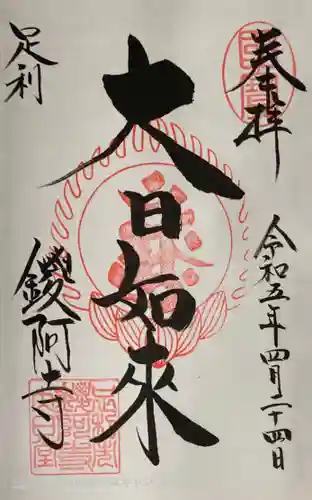 奉拝
令和五年四月二十四日
大日如来
足利
鑁阿寺